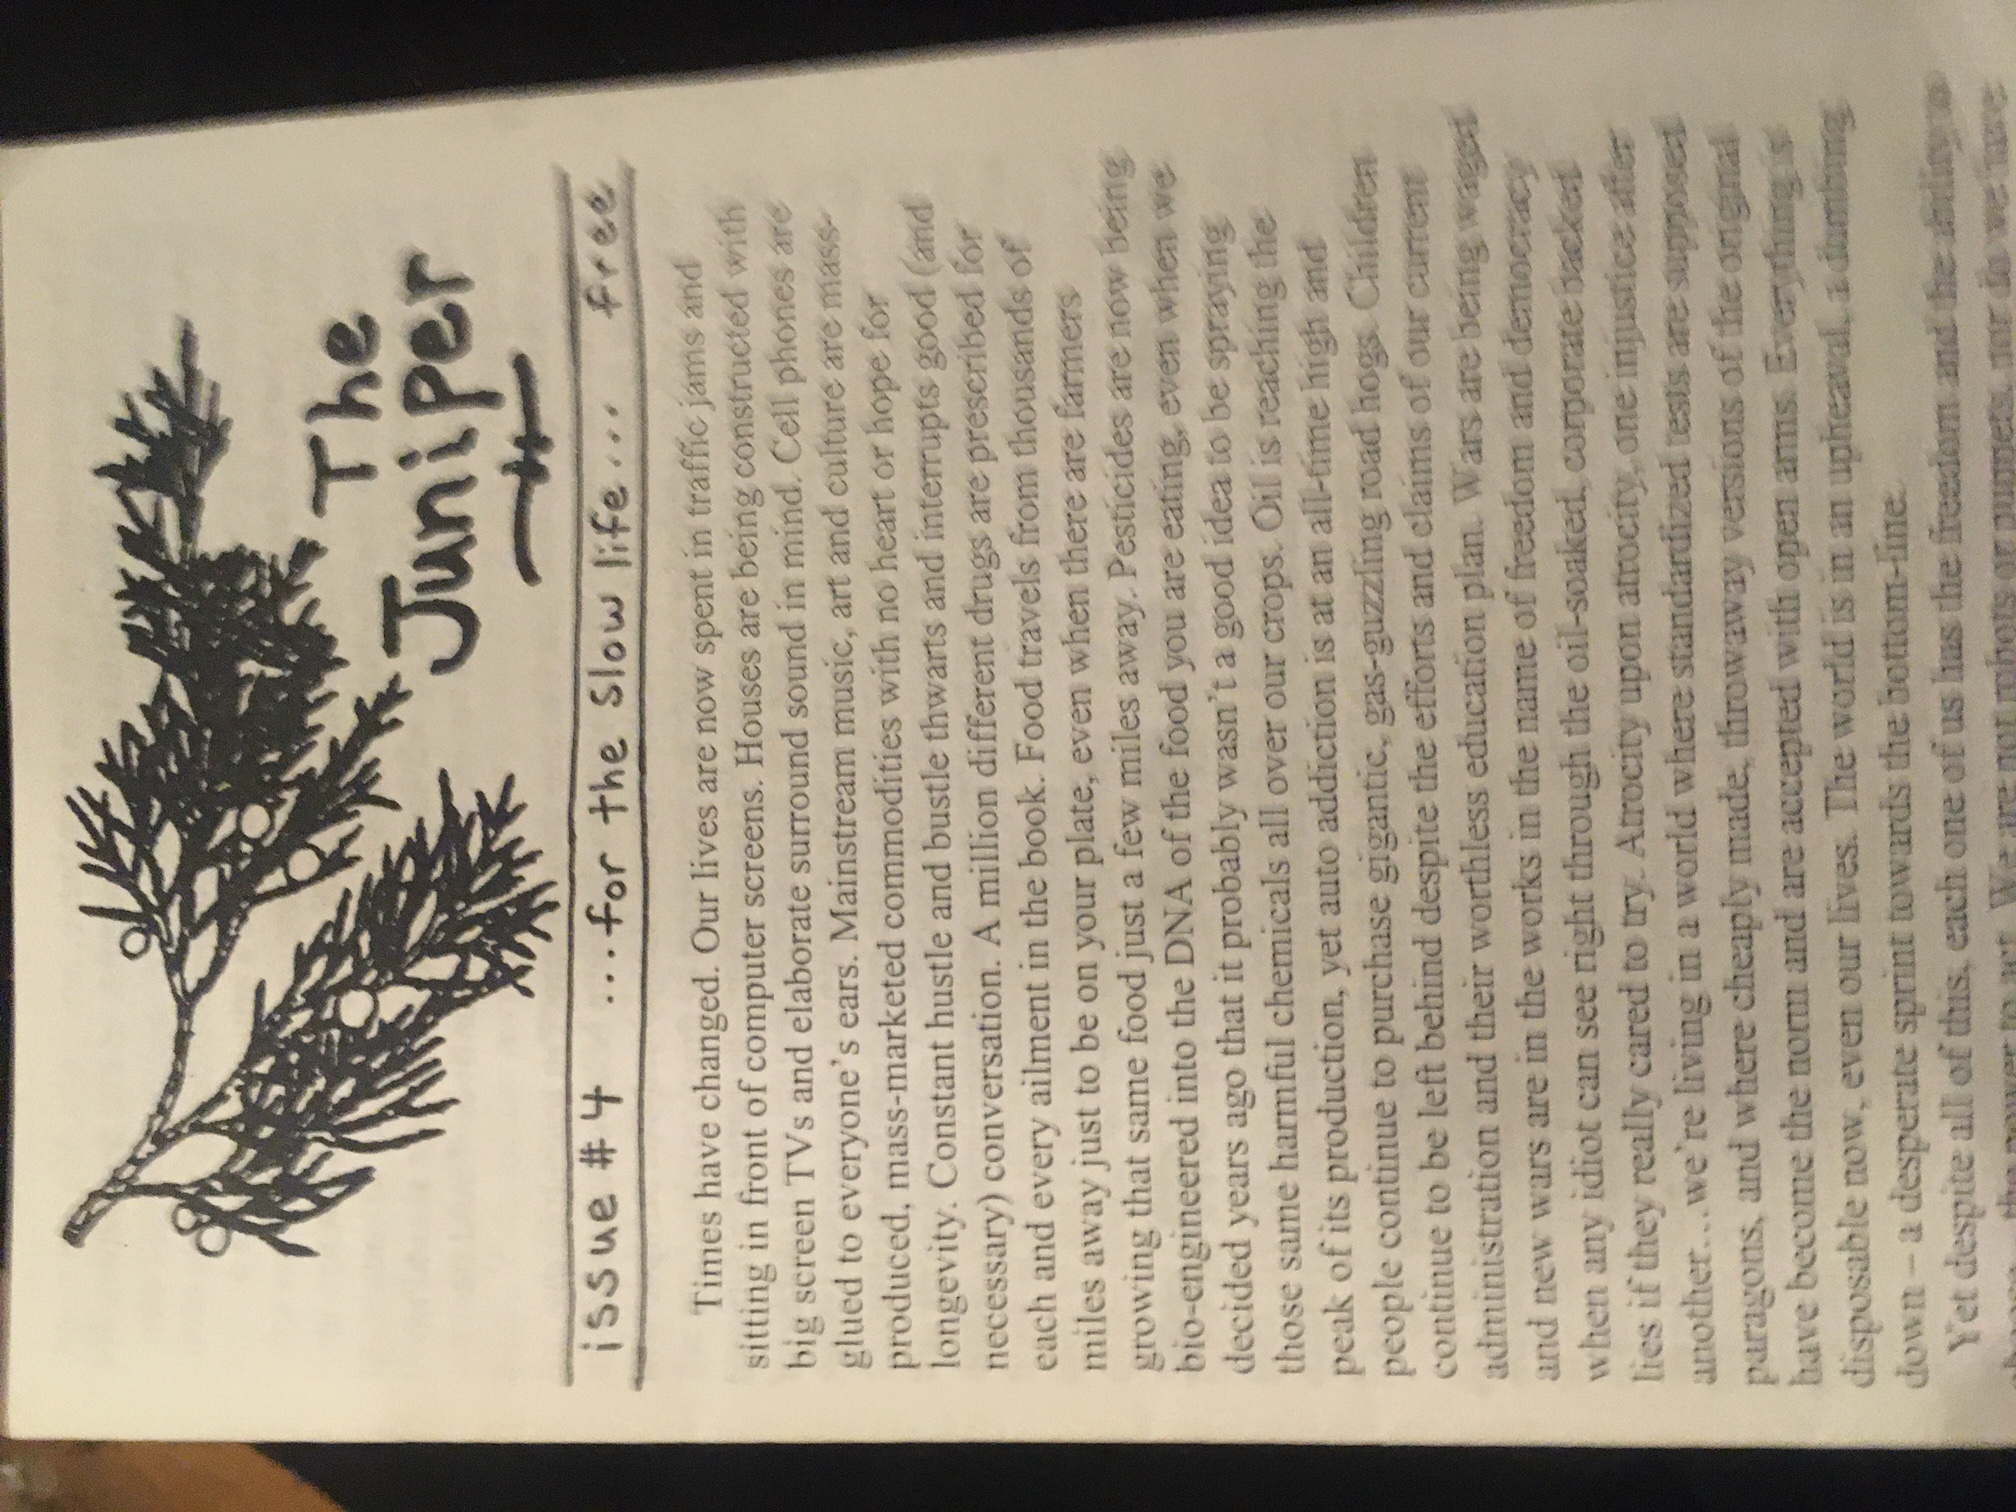 The
Juniper
issue #4 ...for the slow life... free
Times have changed. Our lives are now spent in traffic jams and
sitting in front of computer screens. Houses are being constructed with
big screen TVs and elaborate surround sound in mind. Cell phones are
glued to everyone's ears. Mainstream music, art and culture are mass-
produced, mass-marketed commodities with no heart or hope for
longevity. Constant hustle and bustle thwarts and interrupts good (and
necessary) conversation. A million different drugs are prescribed for
each and every ailment in the book. Food travels from thousands of
miles away just to be on your plate, even when there are farmers
growing that same food just a few miles away. Pesticides are now being
bio-engineered into the DNA of the food you are eating, even when we
decided years ago that it probably wasn't a good idea to be spraying
those same harmful chemicals all over our crops. Oil is reaching the
peak of its production, yet auto addiction is at an all-time high and
people continue to purchase gigantic, gas-guzzling road hogs. Children
continue to be left behind despite the efforts and claims of our current
administration and their worthless education plan. Wars are being waged
and new wars are in the works in the name of freedom and democracy
when any idiot can see right through the oil-soaked, corporate backed
lies if they really cared to try. Atrocity upon atrocity, one injustice after
another…we're living in a world where standardized tests are supposed
paragons, and where cheaply made, throwaway versions of the original
have become the norm and are accepted with open arms. Everything is
disposable now, even our lives. The world is in an upheaval, a dumbing
down – a desperate sprint towards the bottom-line.
Yet despite all of this, each one of us has the freedom and the
power to act. We are not robots or puppets, nor do we have